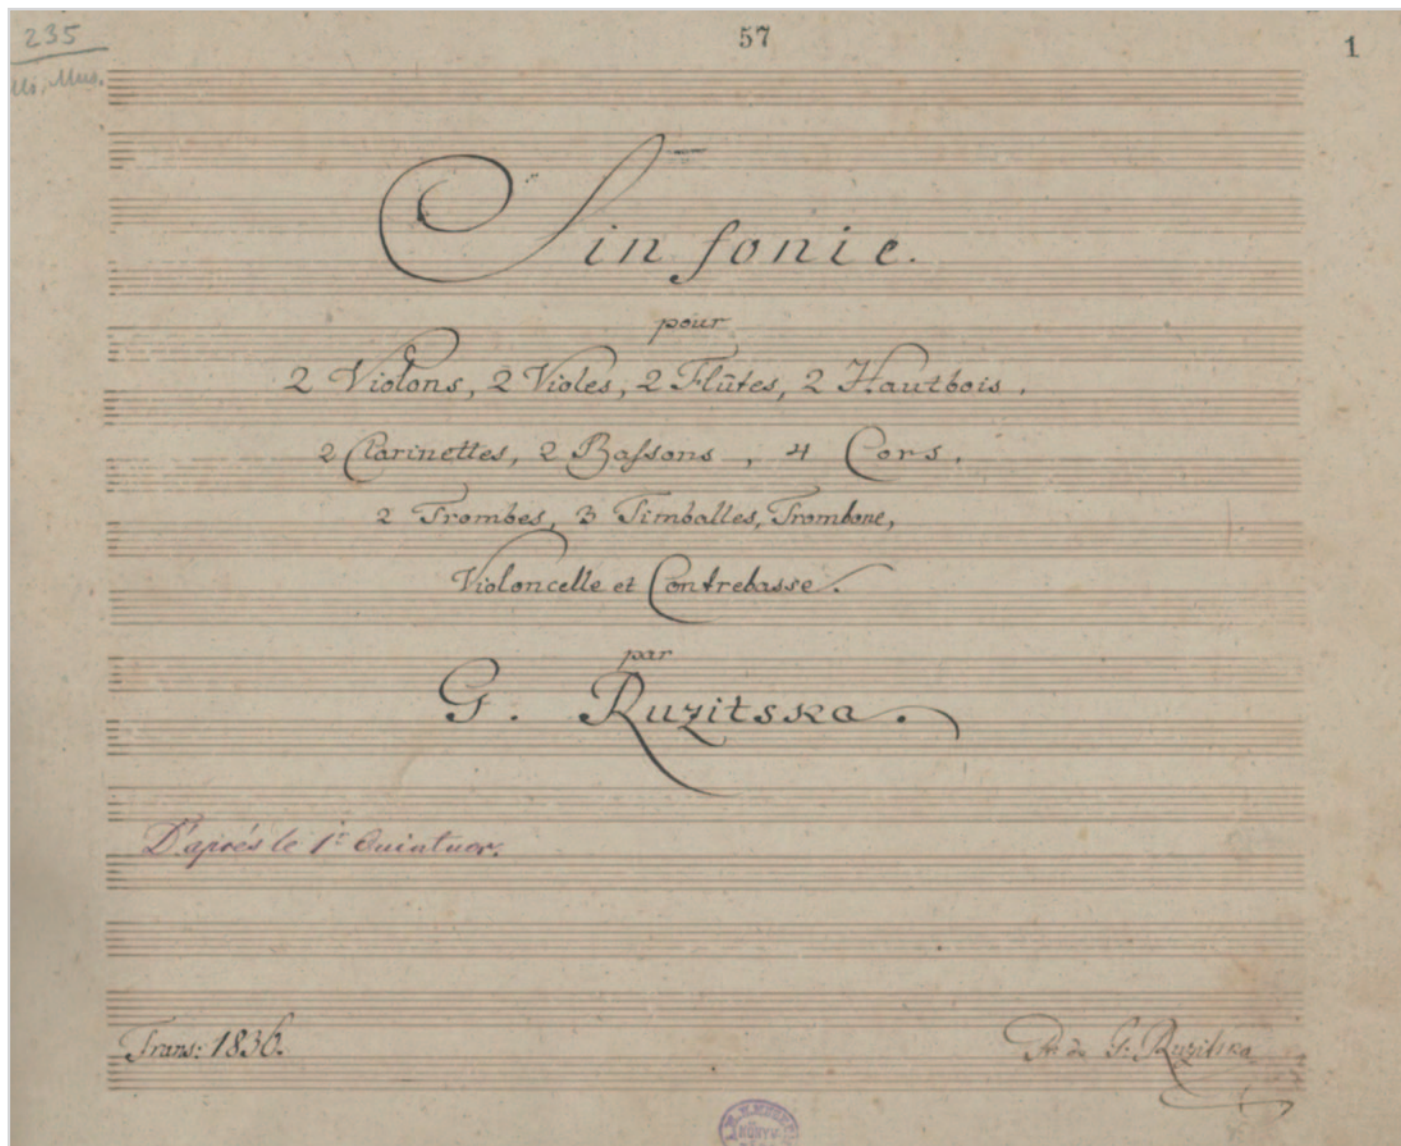 235
57
1
Ms. Mus.
Sinfonie.
pour
2 Violons, 2 Violes, 2 Flûtes, 2 Hautbois.
2 Clarinettes, 2 Baſsons, 4 Cors.
2 Trombes, 3 Timballes, Trombone,
Violoncelle et Contrebasse.
par
G. Ruzitska.
D'aprés le 1r Quintuor.
Trans: 1836.
de G: Ruzitska
KÖNYV